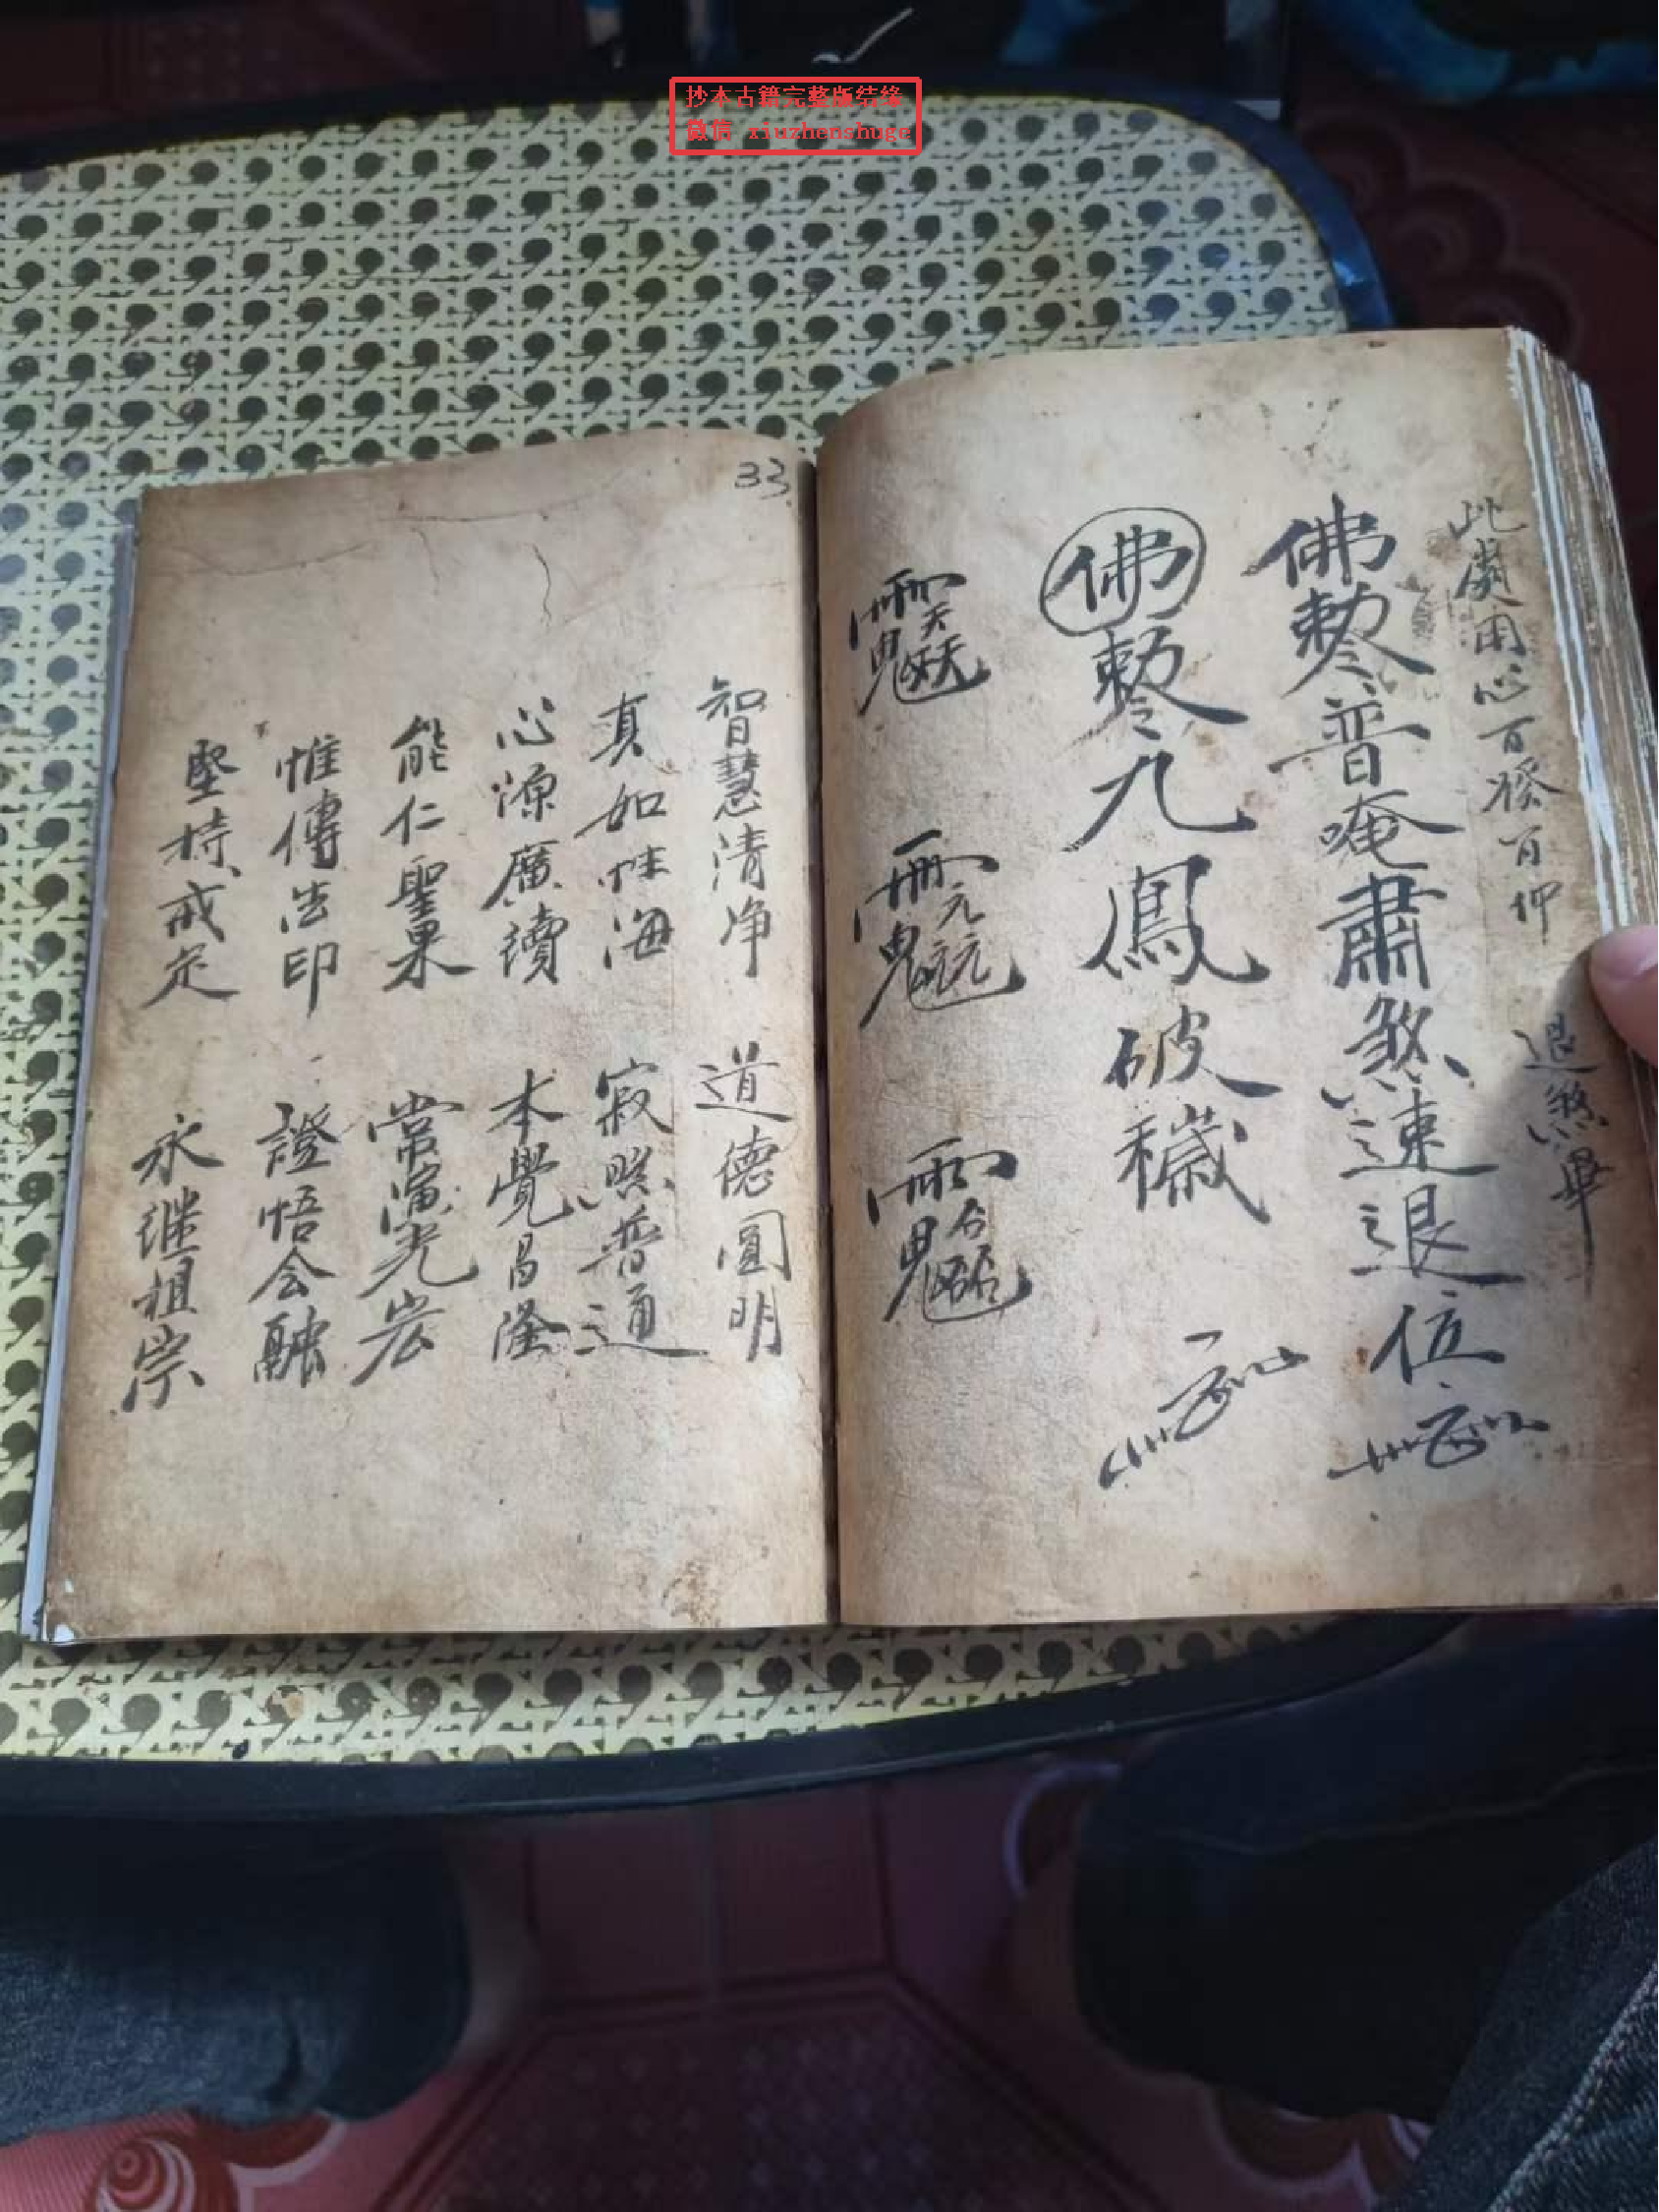 抄本古籍完整版结缘
微信 xiuzhenshuge
此處用心百揆百仰 退煞畢
佛勅普唵肅煞速退位
佛勅九鳳破穢
33
智慧清净 道德圓明
真如性海 寂照普通
心源廣續 本覺昌隆
能仁聖果 常演光宏
惟傳法印 證悟会融
堅持戒定 永继祖宗